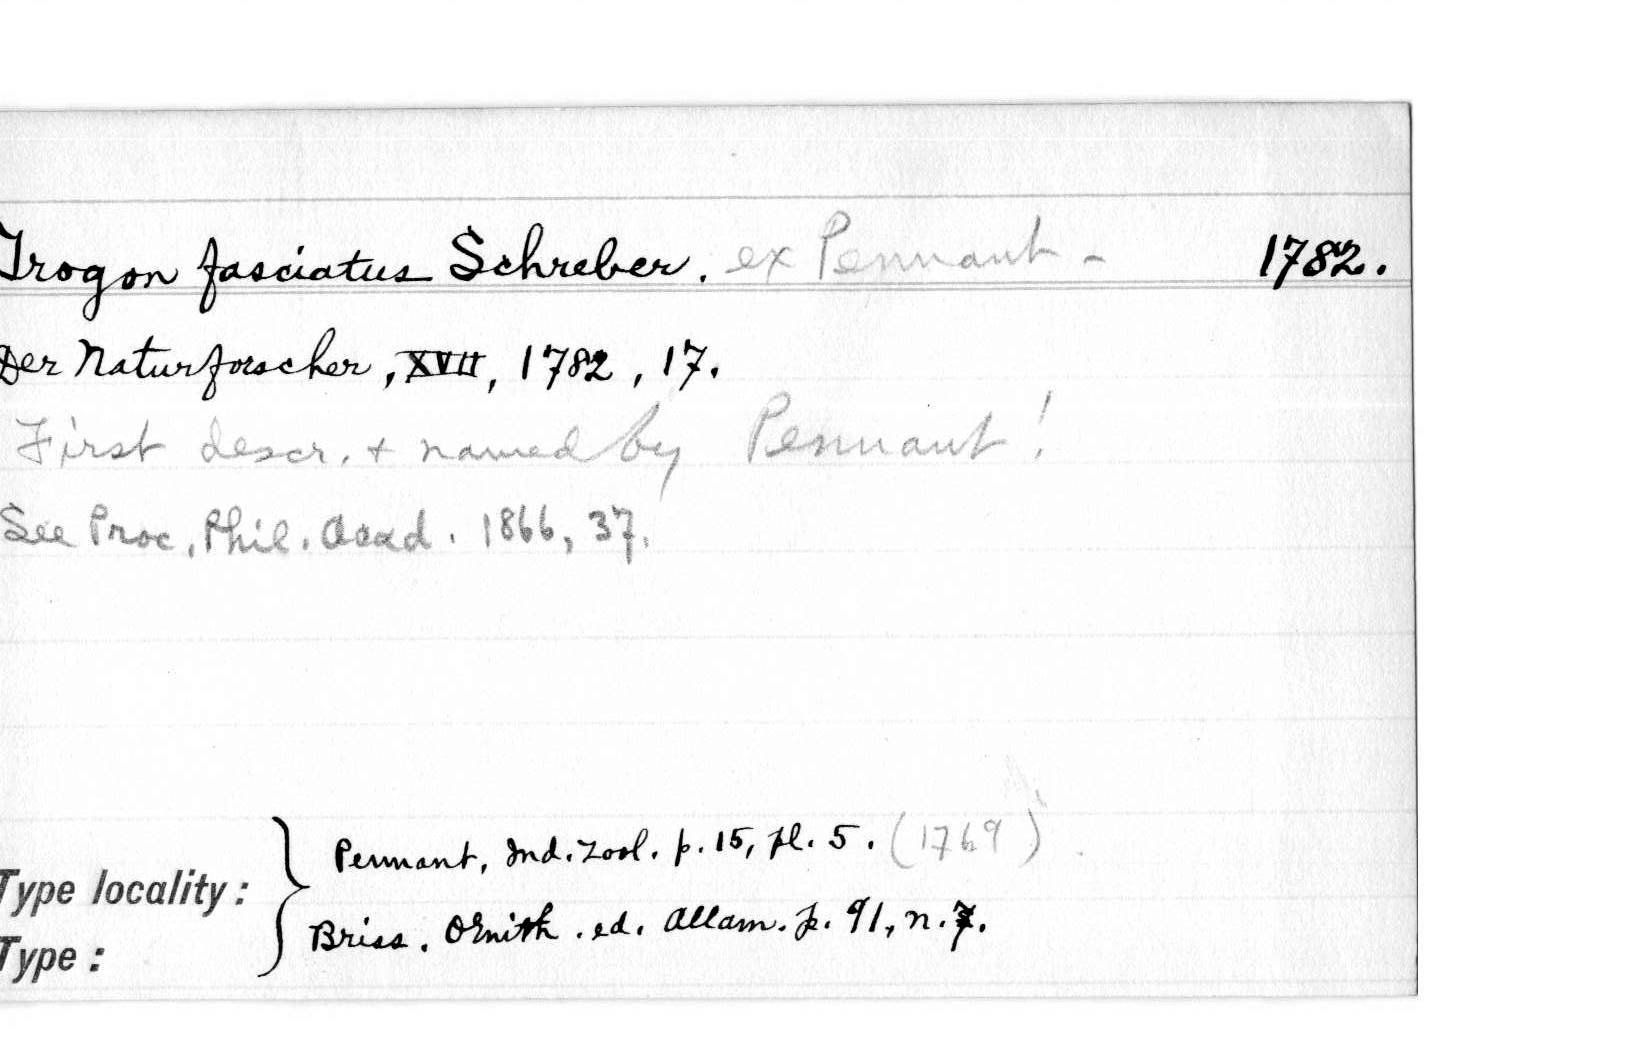 Trogon fasciatus Schreber. ex Pennant - 1782.
Der Naturforscher, XVII, 1782, 17.
First descr. + named by Pennant!
See Proc. Phil. Acad. 1866, 37.
Pennant, Ind. Zool. p. 15, pl. 5. (1769)
Type locality:
Briss. Ornith. ed. Allam. p. 91, n. 7.
Type: